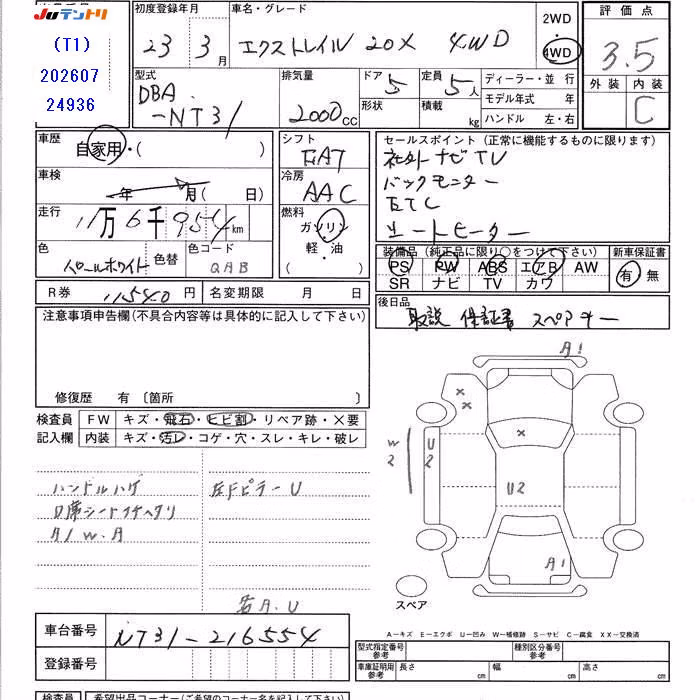 Juテントリ
(T1)
202607
24936
初度登録年月
23 3月
車名・グレード
エクストレイル 20X 4WD
2WD
・
4WD
評価点
3.5
外装 内装
C
型式
DBA
-NT31
排気量
2000cc
ドア 5
形状
定員 5人
積載 kg
ディーラー・並行
モデル年式 年
ハンドル 左・右
車歴
自家用・( )
車検
年 月( 日)
走行
11万6千954km
色
パールホワイト
色替
色コード
QAB
シフト
FAT
冷房
AAC
燃料
ガソリン
軽・油
( )
セールスポイント (正常に機能するものに限ります)
社外ナビTV
バックモニター
ETC
シートヒーター
装備品 (純正品に限り〇をつけて下さい)
新車保証書
PS PW ABS エアB AW
SR ナビ TV カワ
有 無
R券 11540円
名変期限 月 日
後日品
取説 保証書 スペアキー
注意事項申告欄(不具合内容等は具体的に記入して下さい)
修復歴 有 〔箇所 〕
検査員
記入欄
FW キズ・飛石・ヒビ割・リペア跡・×要
内装 キズ・汚レ・コゲ・穴・スレ・キレ・破レ
ハンドルハゲ
D席シートフチヘタリ
A1 W.A
左Fピラー U
若A.U
A1
W
2
U
2
U2
A1
スペア
A−キズ E−エクボ U−凹み W−補修跡 S−サビ C−腐食 XX−交換済
車台番号 NT31-216554
登録番号
型式指定番号
参考
種別区分番号
参考
車庫証明用
参考
長さ cm 幅 cm 高さ cm
検査員
希望出品コーナー(ご希望のコーナー名を記入下さい)